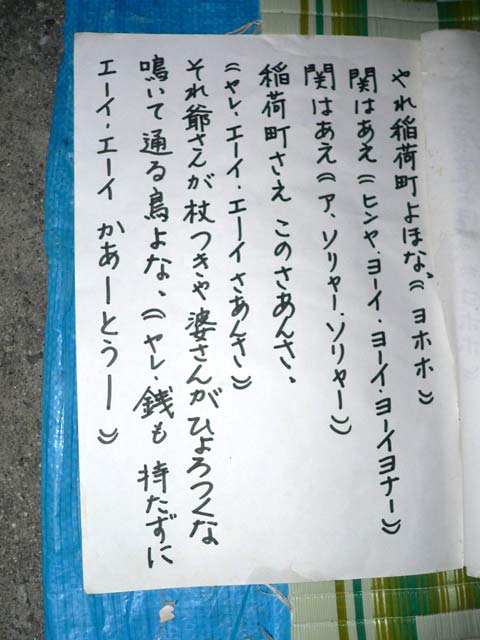 やれ稲荷町よほな、(ヨホホ)
関はあえ(ヒンヤ・ヨーイ・ヨーイ・ヨーイヨナー)
関はあえ(ア、ソリャー・ソリャー)
稲荷町さえ このさあんさ、
(ヤレ・エーイ・エーイさあんさ)
それ爺さんが杖つきや婆さんがひょろつくな
鳴いて通る鳥よな、(ヤレ・銭も 持たずに
エーイ・エーイ かあーとうー)